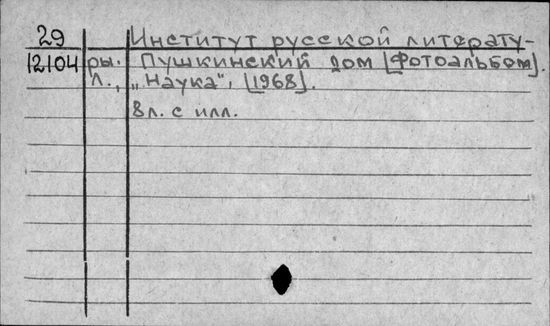 29 Институт русской литерату-
12104 ры. Пушкинский дом [Фотоальбом].
Л., „Наука", [1968].
8л. с илл.